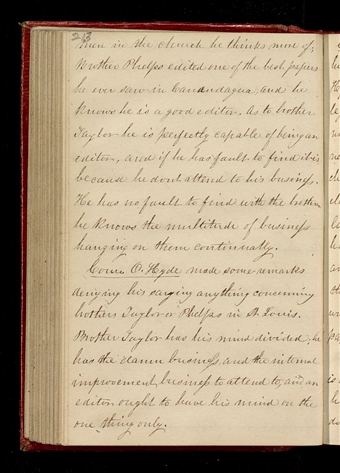 263
man in the church he thinks more of;
Brother Phelps edited one of the best papers
he ever saw in Canandagua, and he
knows he is a good editor. As to brother
Taylor he is perfectly capable of being an
editor, and if he has fault to find it is
because he dont attend to his business.
He has no fault to find with the brethren
he knows the multitude of business
hanging on them continually.
Coun. O. Hyde made some remarks
denying his saying anything concerning
brothers Taylor or Phelps in St. Louis.
Brother Taylor has his mind divided, he
has the claim business, and the internal
improvement business to attend to, and an
editor ought to have his mind on the
one thing only.